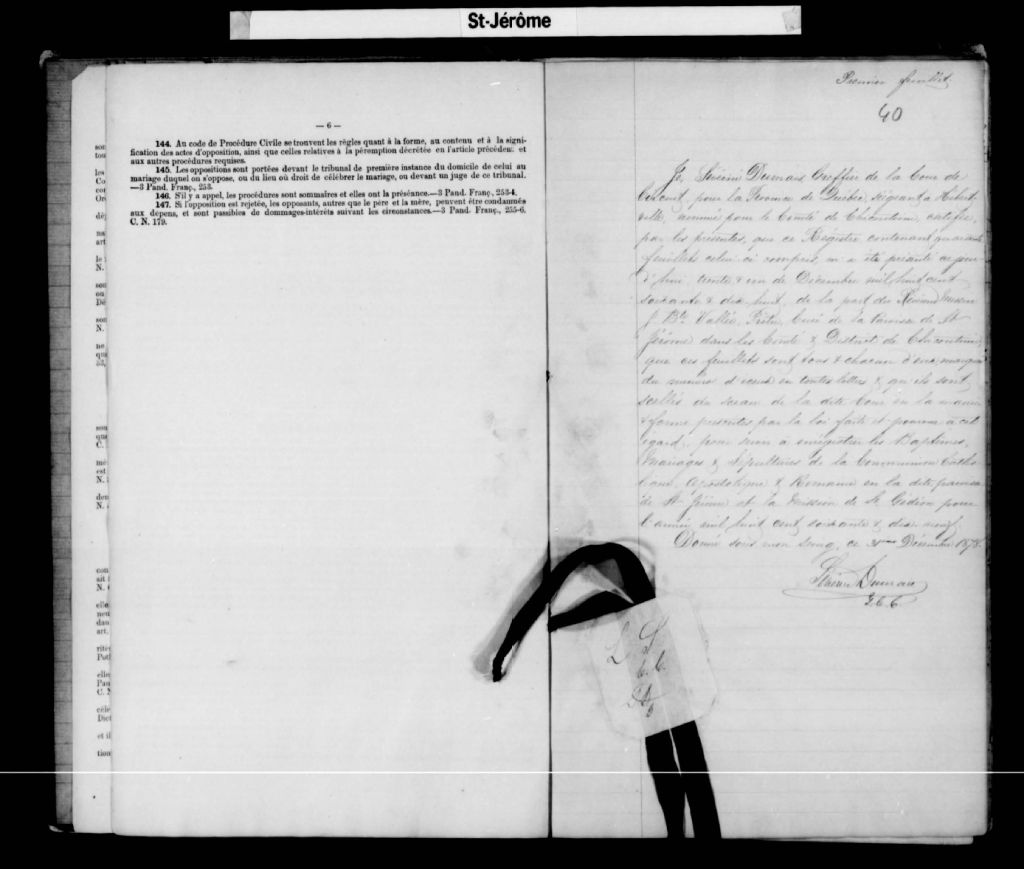 St-Jérôme
— 6 —
144. Au code de Procédure Civile se trouvent les règles quant à la forme, au contenu et à la signi-
fication des actes d'opposition, ainsi que celles relatives à la péremption décrétée en l'article précédent et
aux autres procédures requises.
145. Les oppositions sont portées devant le tribunal de première instance du domicile de celui au
mariage duquel on s'oppose, ou du lieu où droit de célébrer le mariage, ou devant un juge de ce tribunal.
—3 Pand. Franç., 253.
146. S'il y a appel, les procédures sont sommaires et elles ont la préséance.—3 Pand. Franç., 253-4.
147. Si l'opposition est rejetée, les opposants, autres que le père et la mère, peuvent être condamnés
aux dépens, et sont passibles de dommages-intérêts suivant les circonstances.—3 Pand. Franç., 255-6.
C. N. 179.
Premier feuillet
40
Je, Sévérin Dumais Greffier de la Cour de
Circuit, pour la Province de Québec, siégeant à Hébert-
ville, pour le Comté de Chicoutimi, certifie,
par les présentes, que ce Régistre contenant quarante
feuillets celui ci compris, m'a été présenté ce jour-
d'hui, trente & un de Décembre mil huit cent
soixante & dix huit, de la part du Révérend Messire
J. Bte Vallée, Prêtre, Curé de la Paroisse de St
Jérôme dans les Comté & District de Chicoutimi
que ces feuillets sont tous & chacun d'eux marqués
du numéro d'iceux en toutes lettres & qu'ils sont
scellés du sceau de la dite Cour en la manière
& forme prescrites par la loi faite et pourvue à cet
égard; pour servir à enrégistrer les Baptêmes,
Mariages & Sépultures de la Communion Catho-
lique, Apostolique & Romaine en la dite paroisse
de St Jérôme et la Mission de St Gédéon pour
l'année mil huit cent soixante & dix neuf.
Donné sous mon seing, ce 31me Décembre 1878.
Sévérin Dumais
G.C.C.
L. S.